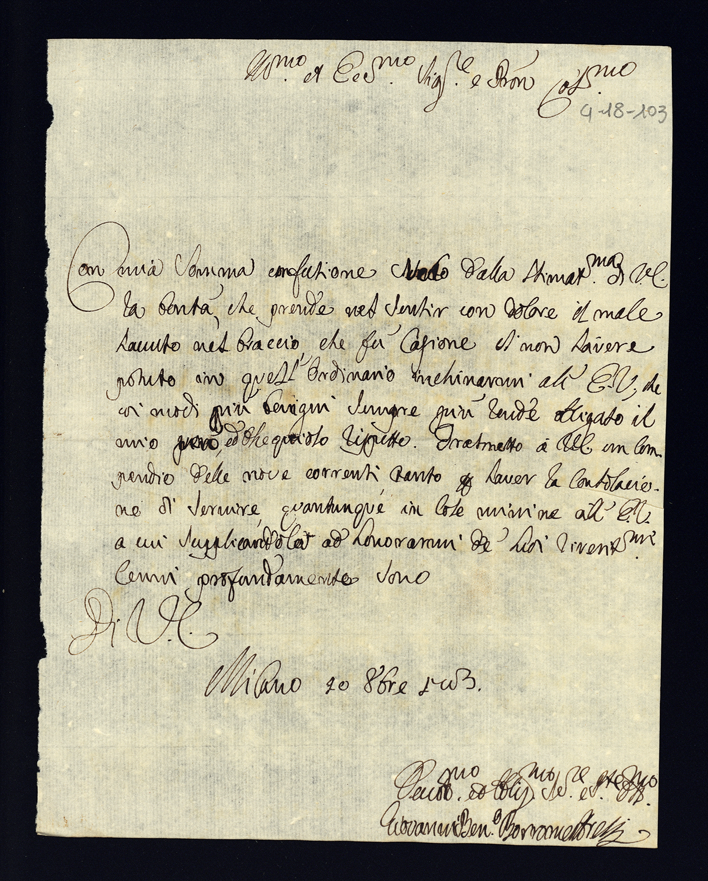 Ill.mo et Ecc.mo Sig.re e Pron Col.mo
9-18-103
Con mia somma confusione dalla stimat.ma di V.E.
la bontà, che prende nel sentir con dolore il male
havuto nel braccio, che fù cagione di non havere
potuto in quest'ordinario inchinarmi all'E.V., che
coi modi più benigni sempre più rende obligato il
mio ed ossequioso rispetto. Trasmetto à V.E. un com-
pendio delle nove correnti tanto p haver la consolacio-
ne di servire, quantunque in cose minime all'E.V.
a cui supplicandola ad honorarmi de suoi river.mi
cenni profundamente sono
Di V.E.
Milano 20 8bre
Devot.mo ed Obl.mo Se.re
Giovanni Ben.o Borromeo Aresi